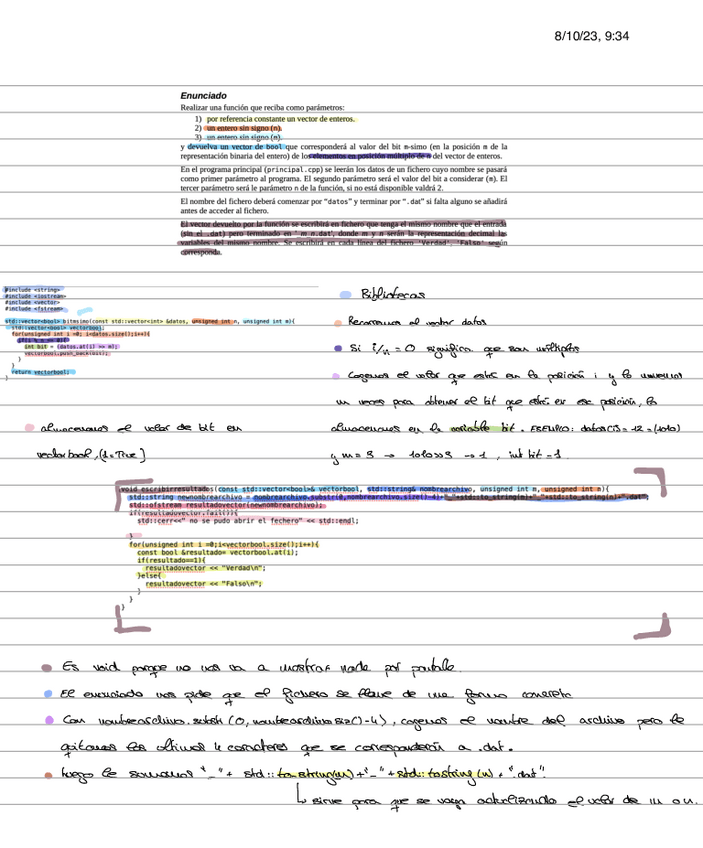 8/10/23, 9:34
Enunciado
Realizar una función que reciba como parámetros:
1) por referencia constante un vector de enteros.
2) un entero sin signo (n).
3) un entero sin signo (m).
y devuelva un vector de bool que corresponderá al valor del bit m-simo (en la posición m de la
representación binaria del entero) de los elementos en posición múltiplo de n del vector de enteros.
En el programa principal (principal.cpp) se leerán los datos de un fichero cuyo nombre se pasará
como primer parámetro al programa. El segundo parámetro será el valor del bit a considerar (m). El
tercer parámetro será le parámetro n de la función, si no está disponible valdrá 2.
El nombre del fichero deberá comenzar por "datos" y terminar por ".dat" si falta alguno se añadirá
antes de acceder al fichero.
El vector devuelto por la función se escribirá en fichero que tenga el mismo nombre que el entrada
(sin el .dat) pero terminado en '_m_n.dat', donde m y n serán la representación decimal la
variables del mismo nombre. Se escribirá en cada línea del fichero 'Verdad', 'Falso' según
corresponda.
#include <string>
#include <iostream>
#include <vector>
#include <fstream>
std::vector<bool> bitesimo(const std::vector<int> &datos, unsigned int n, unsigned int m){
std::vector<bool> vectorbool;
for(unsigned int i =0; i<datos.size();i++){
int bit = (datos.at(i) >> m);
vectorbool.push_back(bit);
}
}
return vectorbool;
}
Bibliotecas
Recorremos el vector datos
Si i/n = 0 significa que son múltiplos
Cogemos el valor que está en la posición i y lo movemos
m veces para obtener el bit que está en esa posición, lo
almacenamos en la variable bit. EJEMPLO: datos(i)=12=(1010)
y m=3 → 1010>>3 → 1, int bit=1
almacenamos el valor de bit en
vectorbool, (1=True]
void escribirresultados(const std::vector<bool>& vectorbool, std::string& nombrearchivo, unsigned int m, unsigned int n){
std::string newnombrearchivo = nombrearchivo.substr(0,nombrearchivo.size()-4)+"_"+std::to_string(m)+"_"+std::to_string(n)+".dat";
std::ofstream resultadovector(newnombrearchivo);
if(resultadovector.fail()){
std::cerr<<" no se pudo abrir el fechero" << std::endl;
}
for(unsigned int i =0;i<vectorbool.size();i++){
const bool &resultado= vectorbool.at(i);
if(resultado==1){
resultadovector << "Verdad\n";
}else{
resultadovector << "Falso\n";
}
}
}
Es void porque no nos va a mostrar nada por pantalla
El enunciado nos pide que el fichero se llame de una forma concreta
Con nombrearchivo.substr (0, nombrearchivo.size()-4), cogemos el nombre del archivo pero le
quitamos los últimos 4 caracteres que se corresponderán a .dat.
Luego le sumamos "_"+ std::to_string(m)+"_"+std::tostring(n)+".dat".
↳ sirve para que se vaya actualizando el valor de m o n.